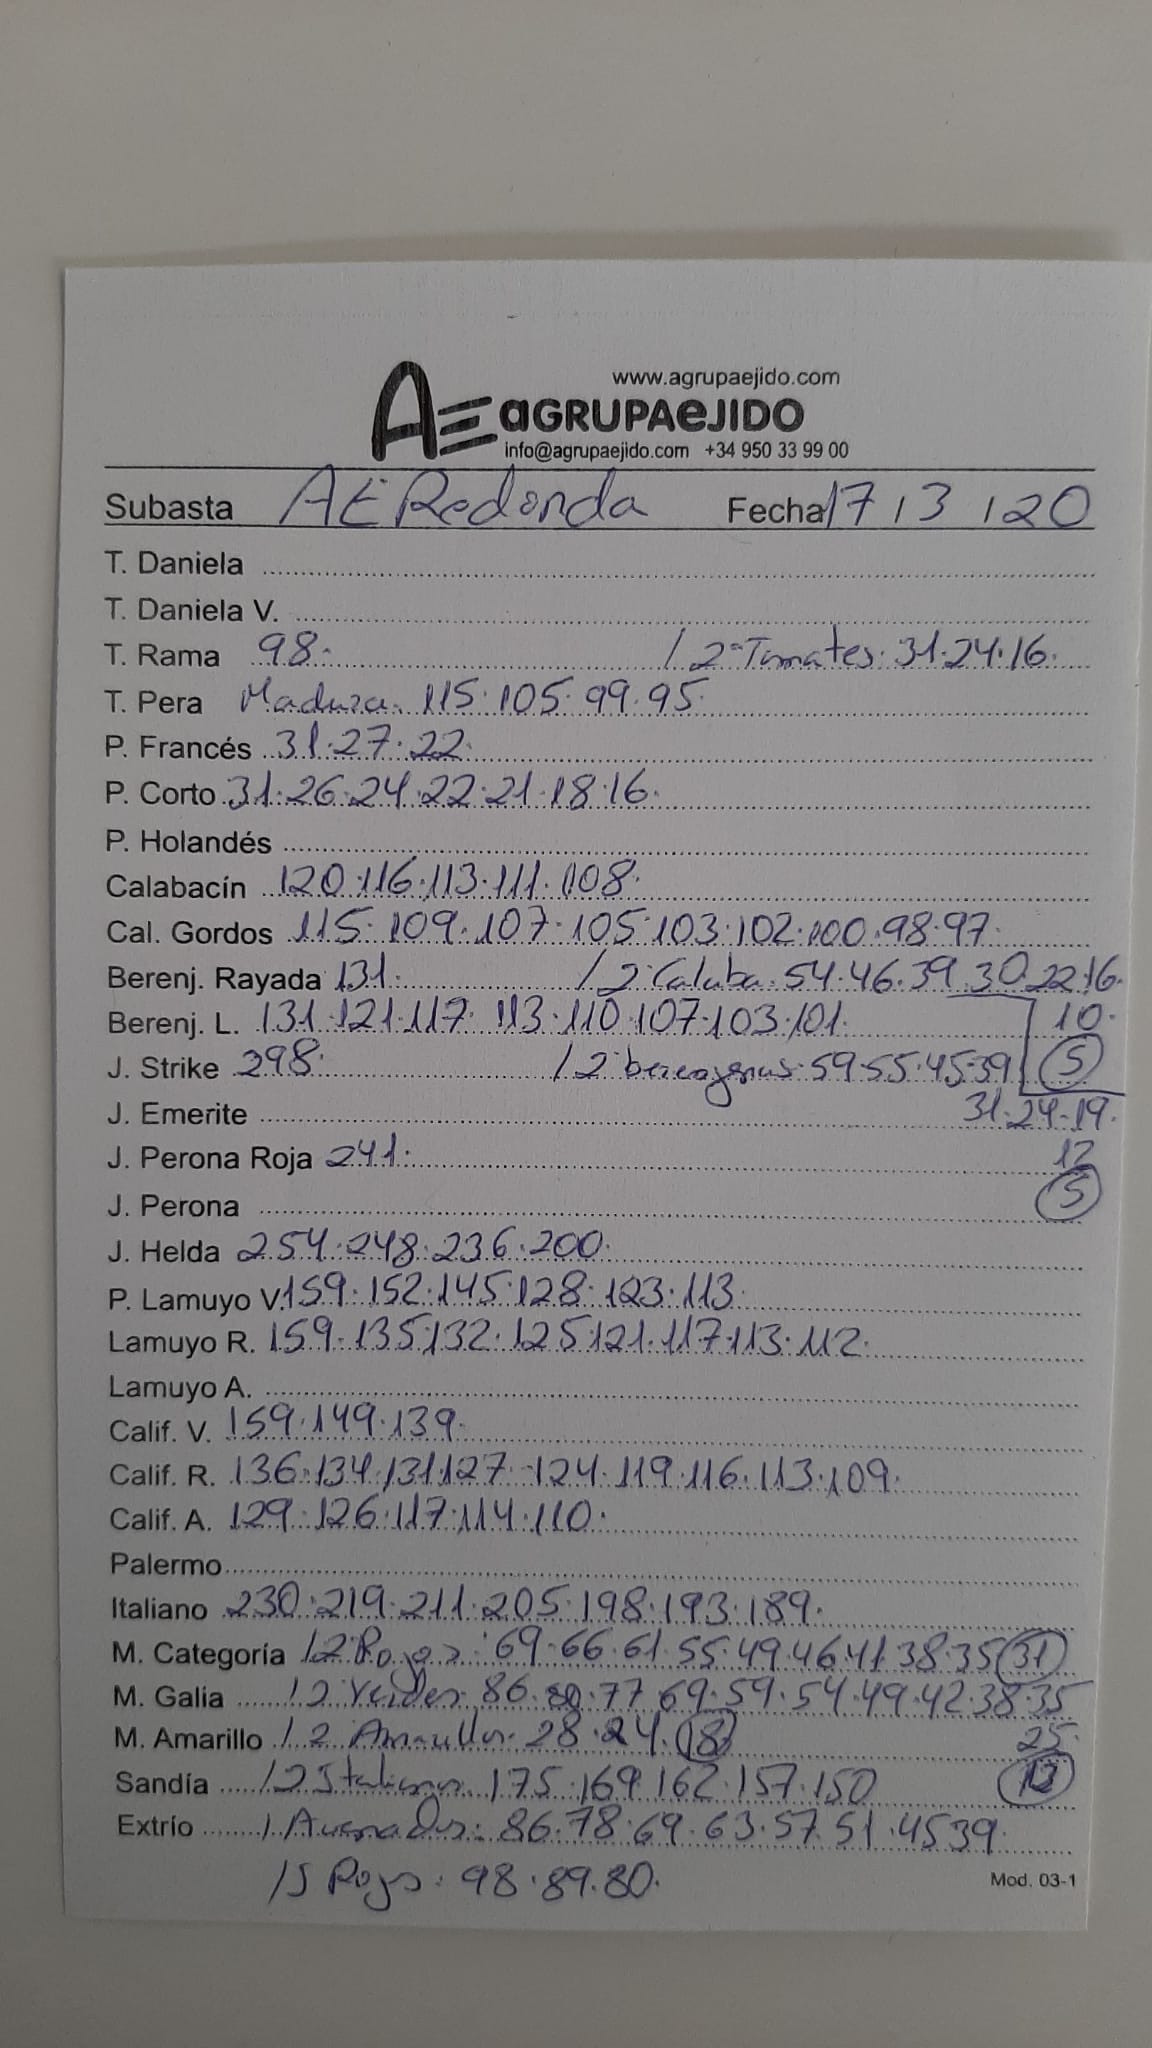 www.agrupaejido.com
AE aGRUPAeJIDO
info@agrupaejido.com +34 950 33 99 00
Subasta AE Redonda Fecha 17 / 3 / 20
T. Daniela
T. Daniela V.
T. Rama 98. / 2ª Tomates. 31.24.16.
T. Pera Madura. 115.105.99.95.
P. Francés 31.27.22.
P. Corto 31.26.24.22.21.18.16.
P. Holandés
Calabacín 120.116.113.111.108.
Cal. Gordos 115.109.107.105.103.102.100.98.97.
Berenj. Rayada 131. / 2ª Calaba. 54.46.39.30.22.16.
Berenj. L. 131.121.117.113.110.107.103.101. 10.
J. Strike 298. / 2 berengenas. 59.55.45.39 (5)
J. Emerite 31.24.19.
J. Perona Roja 241. 12
J. Perona (5)
J. Helda 254.248.236.200.
P. Lamuyo V. 159.152.145.128.123.113.
Lamuyo R. 159.135.132.125.121.117.113.112.
Lamuyo A.
Calif. V. 159.149.139.
Calif. R. 136.134.131.127.124.119.116.113.109.
Calif. A. 129.126.117.114.110.
Palermo
Italiano 230.219.211.205.198.193.189.
M. Categoría / 2 Rojos: 69.66.61.55.49.46.41.38.35 (31)
M. Galia / 2 Verdes. 86.80.77.69.59.54.49.42.38.35
M. Amarillo / 2 Amarillos. 28.24.(18) 25.
Sandía / 2 Italianos. 175.169.162.157.150 (12)
Extrío / Asurados: 86.78.69.63.57.51.45.39.
/ S Rojos: 98.89.80.
Mod. 03-1